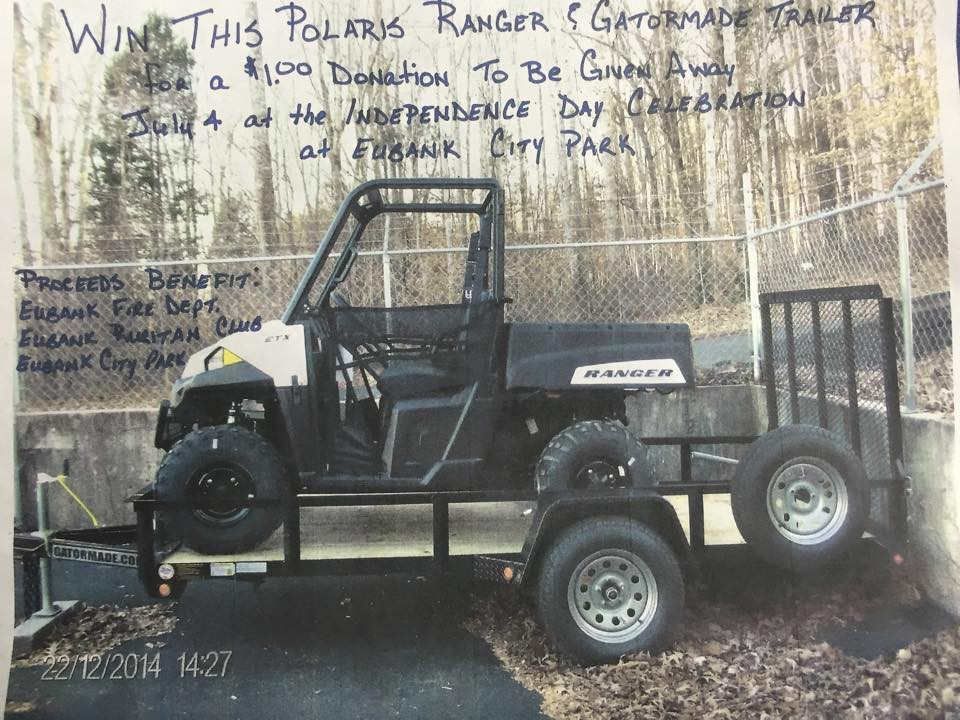 WIN THIS POLARIS RANGER & GATORMADE TRAILER
FOR a $1.00 DONATION TO BE GIVEN AWAY
July 4 at the INDEPENDENCE DAY CELEBRATION
at EUBANK CITY PARK
PROCEEDS BENEFIT:
EUBANK FIRE DEPT.
EUBANK RURITAN CLUB
EUBANK CITY PARK
ETX
RANGER
GATORMADE.CO
22/12/2014 14:27